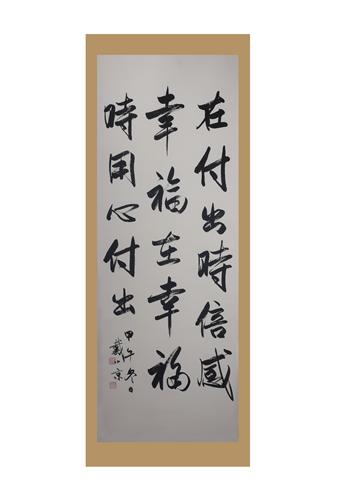 在付出時倍感
幸福在幸福
時用心付出
甲午冬日
戴 京